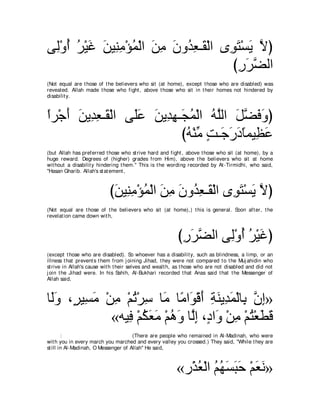 ‫لاَّ يَسْتَوِى الْقَـعِدُونَ مِنَ الْمُؤْمِنِينَ غَيْرُ أُوْلِى
الضَّرَرِ)
(Not equal are those of the believers who sit (at home), except those who are disabled) was
revealed. Allah made those who fight, above those who sit in their homes not hindered by
disability.
(وَفَضَّلَ اللَّهُ الْمُجَـهِدِينَ عَلَى الْقَـعِدِينَ أَجْراً
عَظِيماًدَرَجَـتٍ مِّنْهُ)
(but Allah has preferred those who strive hard and fight, above those who sit (at home), by a
huge reward. Degrees of (higher) grades from Him), above the believers who sit at home
without a disability hindering them." This is the wording recorded by At-Tirmidhi, who said,
"Hasan Gharib. Allah's statement,
(لاَّ يَسْتَوِى الْقَـعِدُونَ مِنَ الْمُؤْمِنِينَ)
(Not equal are those of the believers who sit (at home),) this is general. Soon after, the
revelation came down with,
(غَيْرُ أُوْلِى الضَّرَرِ)
(except those who are disabled). So whoever has a disability, such as blindness, a limp, or an
illness that prevents them from joining Jihad, they were not compared to the Mujahidin who
strive in Allah's cause with their selves and wealth, as those who are not disabled and did not
join the Jihad were. In his Sahih, Al-Bukhari recorded that Anas said that the Messenger of
Allah said,
«إِنَّ بِالْمَدِينَةِ أَقْوَامًا مَا سِرْتُمْ مِنْ مَسِيرٍ، وَلَا
قَطَعْتُمْ مِنْ وَادٍ، إِلَّا وَهُمْ مَعَكُمْ فِيه»
(There are people who remained in Al-Madinah, who were
with you in every march you marched and every valley you crossed.) They said, "While they are
still in Al-Madinah, O Messenger of Allah" He said,
«نَعَمْ حَبَسَهُمُ الْعُذْر»